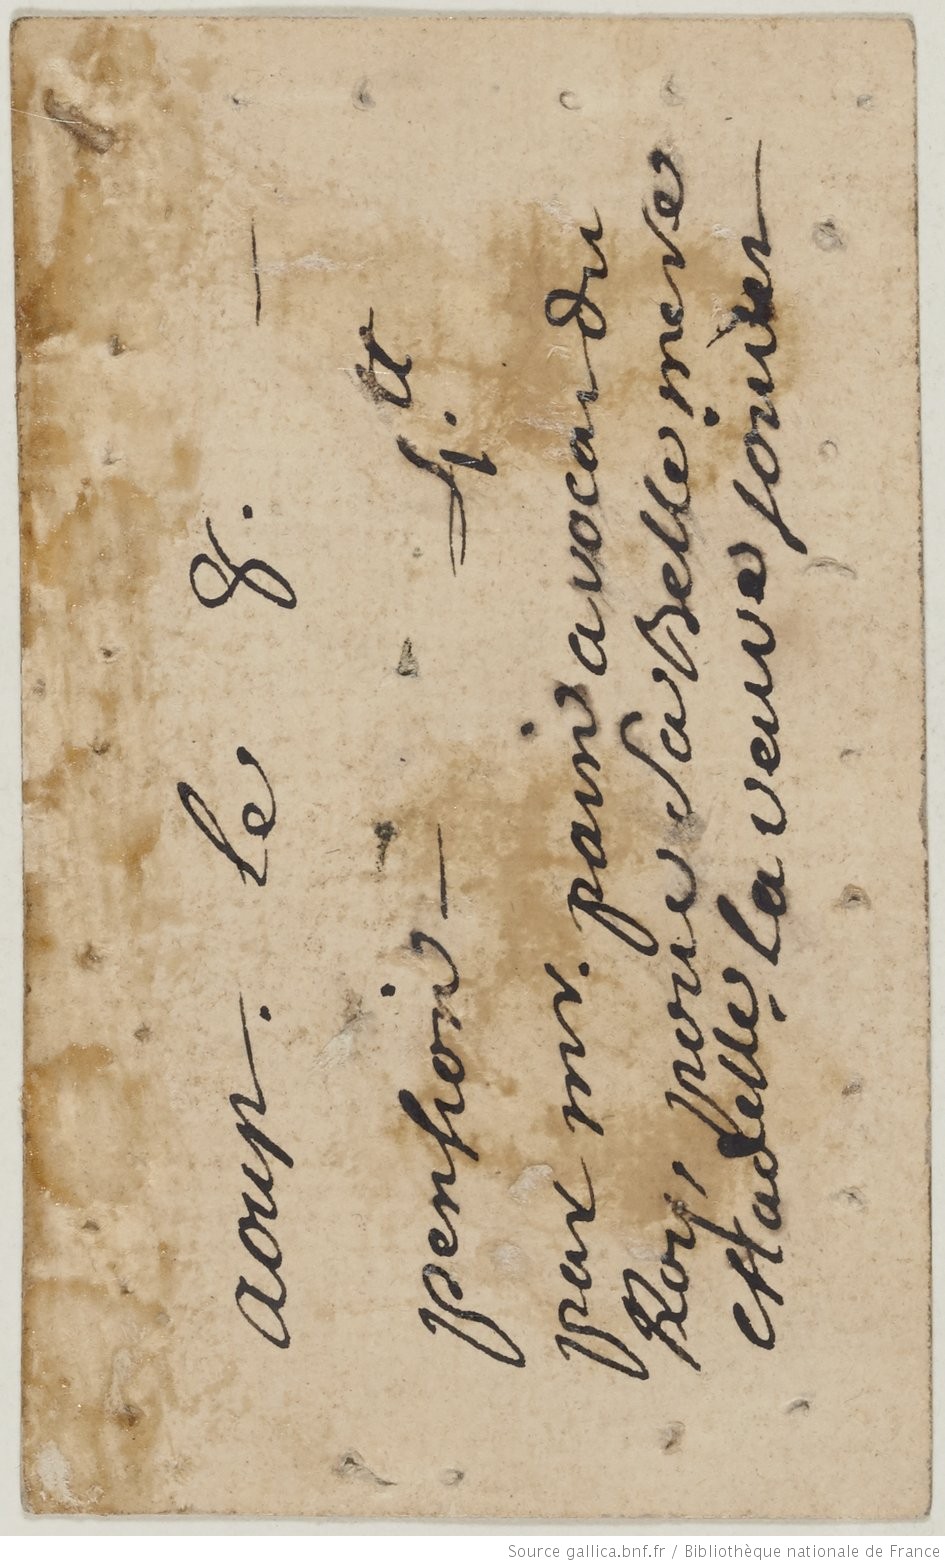 aoup. le 8. —
pension — 4.tt
par mr. pain avocardu
Roy, poure sa Belle mere
et adelle la veuve fouier —
Source gallica.bnf.fr / Bibliothèque nationale de France